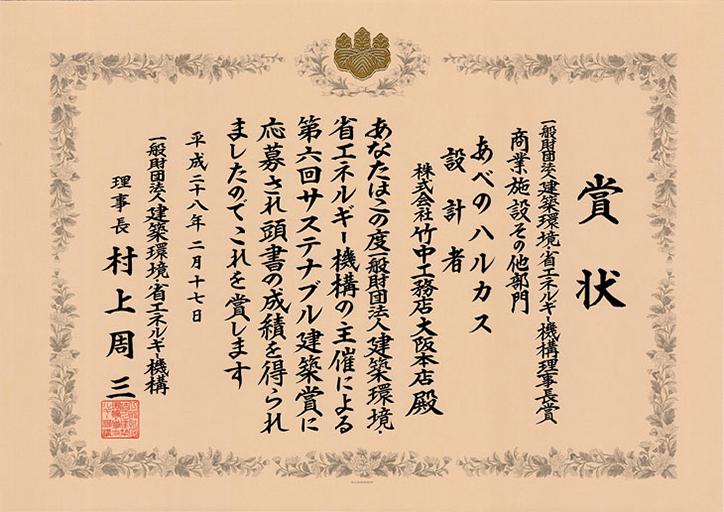 賞状
一般財団法人建築環境・省エネルギー機構理事長賞
商業施設その他部門
あべのハルカス
設計者
株式会社竹中工務店大阪本店殿
あなたはこの度一般財団法人建築環境・
省エネルギー機構の主催による
第六回サステナブル建築賞に
応募され頭書の成績を得られ
ましたのでこれを賞します
平成二十八年二月十七日
一般財団法人建築環境・省エネルギー機構
理事長村上周三